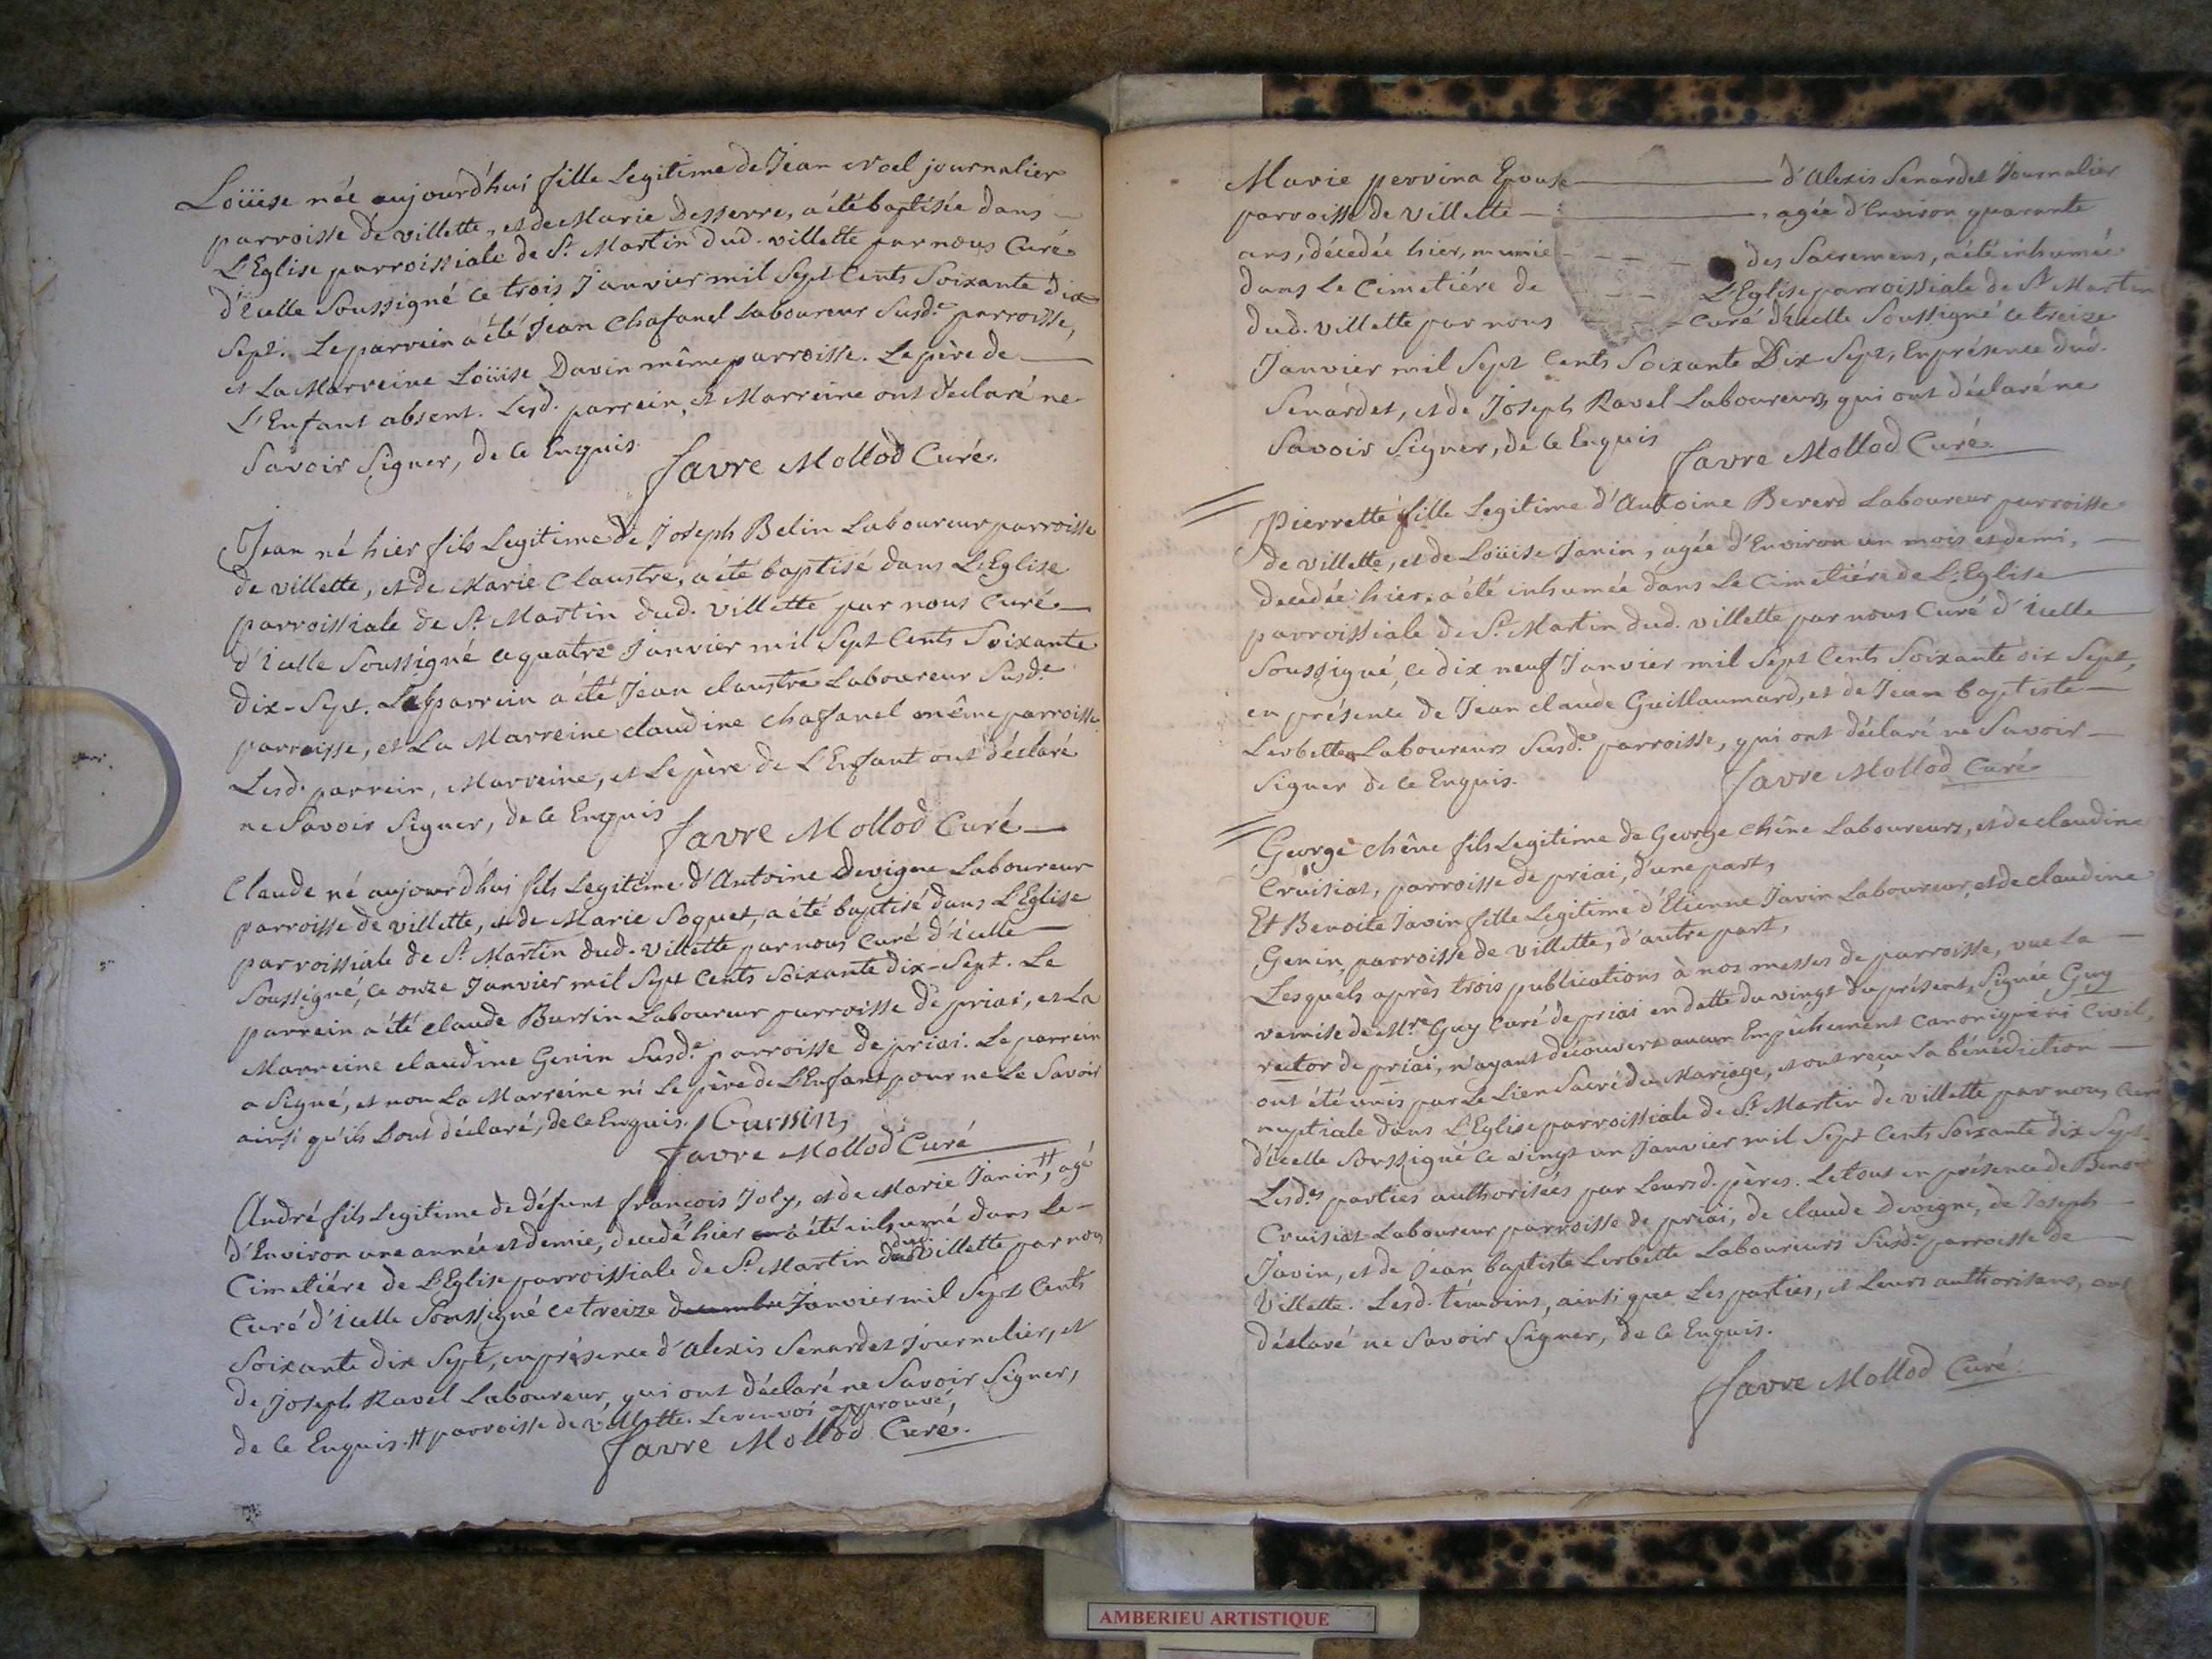 Loüise née aujourd'hui fille Legitime de Jean Noel journalier
parroisse de villette, et de Marie Desserre, a été baptisée dans
L'Eglise parroissiale de St. Martin dud. villette par nous Curé
d'icelle Soussigné ce trois Janvier mil Sept Cents Soixante dix
Sept. Le parrein a été Jean Chafanel Laboureur Susd.e parroisse,
et La Marreine Loüise Davin même parroisse. Le père de
L'Enfant absent. Lesd. parrein, et Marreine ont déclaré ne
Savoir Signer, de ce Enquis
Favre Mollod Curé.
Jean né hier fils Legitime de Joseph Belin Laboureur parroisse
de villette, et de Marie Claustre, a été baptisé dans L'Eglise
parroissiale de St. Martin dud. villette par nous Curé
d'icelle Soussigné ce quatre Janvier mil Sept Cents Soixante
Dix-Sept. Le parrein a été Jean claustre Laboureur Susd.e
parroisse, et La Marreine claudine chafanel même parroisse.
Lesd. parrein, Marreine, et Le père de L'Enfant ont déclaré
ne Savoir Signer, de ce Enquis
Favre Mollod Curé
Claude né aujourd'hui fils Legitime d'Antoine Devigne Laboureur
parroisse de villette, et de Marie Soquet, a été baptisé dans L'Eglise
parroissiale de St. Martin dud. villette par nous Curé d'icelle
Soussigné, ce onze Janvier mil Sept Cents Soixante Dix-Sept. Le
parrein a été claude Bursin Laboureur parroisse de priai, et La
Marreine claudine Genin Susd.e parroisse de priai. Le parrein
a Signé, et non La Marreine ni Le père de L'Enfant pour ne Le Savoir
ainsi qu'ils L'ont déclaré, de ce Enquis.
Favre Mollod Curé
André fils Legitime de défunt francois Joly, et de Marie Janin, # agé
d'Environ une année et demie, decedé hier a été inhumé dans Le
Cimetiére de L'Eglise parroissiale de St. Martin dud. villette par nous
Curé d'icelle Soussigné ce treize decembre Janvier mil Sept Cents
Soixante dix Sept, en présence d'Alexis Senardet Journalier, et
de Joseph Ravel Laboureur, qui ont déclaré ne Savoir Signer,
de ce Enquis. # parroisse de villette. Le renvoi approuvé,
Favre Mollod Curé.
Marie perrina Epouse d'Alexis Senardet Journalier
parroisse de villette, agée d'Environ quarante
ans, décedée hier, munie des Sacremens, a été inhumée
dans Le Cimetiére de L'Eglise parroissiale de St Martin
dud. villette par nous Curé d'icelle Soussigné ce treize
Janvier mil Sept Cents Soixante Dix Sept, En présence dud.
Senardet, et de Joseph Ravel Laboureurs, qui ont déclaré ne
Savoir Signer, de ce Enquis
Favre Mollod Curé.
Pierrette fille Legitime d'Antoine Beverd Laboureur parroisse
de villette, et de Loüise Janin, agée d'Environ un mois et demi,
decedée hier, a été inhumée dans Le Cimetiére de L'Eglise
parroissiale de St. Martin dud. villette par nous Curé d'icelle
Soussigné, ce dix neuf Janvier mil Sept Cents Soixante dix Sept,
en présence de Jean claude Guillaumard, et de Jean baptiste
Lerbette Laboureurs Susd.e parroisse, qui ont déclaré ne Savoir
Signer de ce Enquis.
Favre Mollod Curé
George chêne fils Legitime de George chêne Laboureurs, et de claudine
Cruisiat, parroisse de priai, d'une part,
Et Benoite Javin fille Legitime d'Etienne Javin Laboureur, et de claudine
Genin, parroisse de villette, d'autre part,
Lesquels après trois publications à nos messes de parroisse, vue La
remise de Mre Guy Curé de priai en datte du vingt du présent, Signée Guy
rector de priai, n'ayant découvert aucun Empêchement Canonique ni Civil,
ont été unis par Le Lien Sacré du Mariage, et ont reçu La bénédiction
nuptiale dans L'Eglise parroissiale de St Martin de villette par nous Curé
d'icelle Soussigné ce vingt un Janvier mil Sept Cents Soixante dix Sept.
Lesd.es parties authorisées par Leursd. pères. Le tout en présence de Benoit
Cruisiat Laboureur parroisse de priai, de claude Devigne, de Joseph
Javin, et de Jean baptiste Lerbette Laboureurs Susd.e parroisse de
Villette. Lesd. témoins, ainsi que Les parties, et Leurs authorisans, ont
déclaré ne Savoir Signer, de ce Enquis.
Favre Mollod Curé.
AMBERIEU ARTISTIQUE